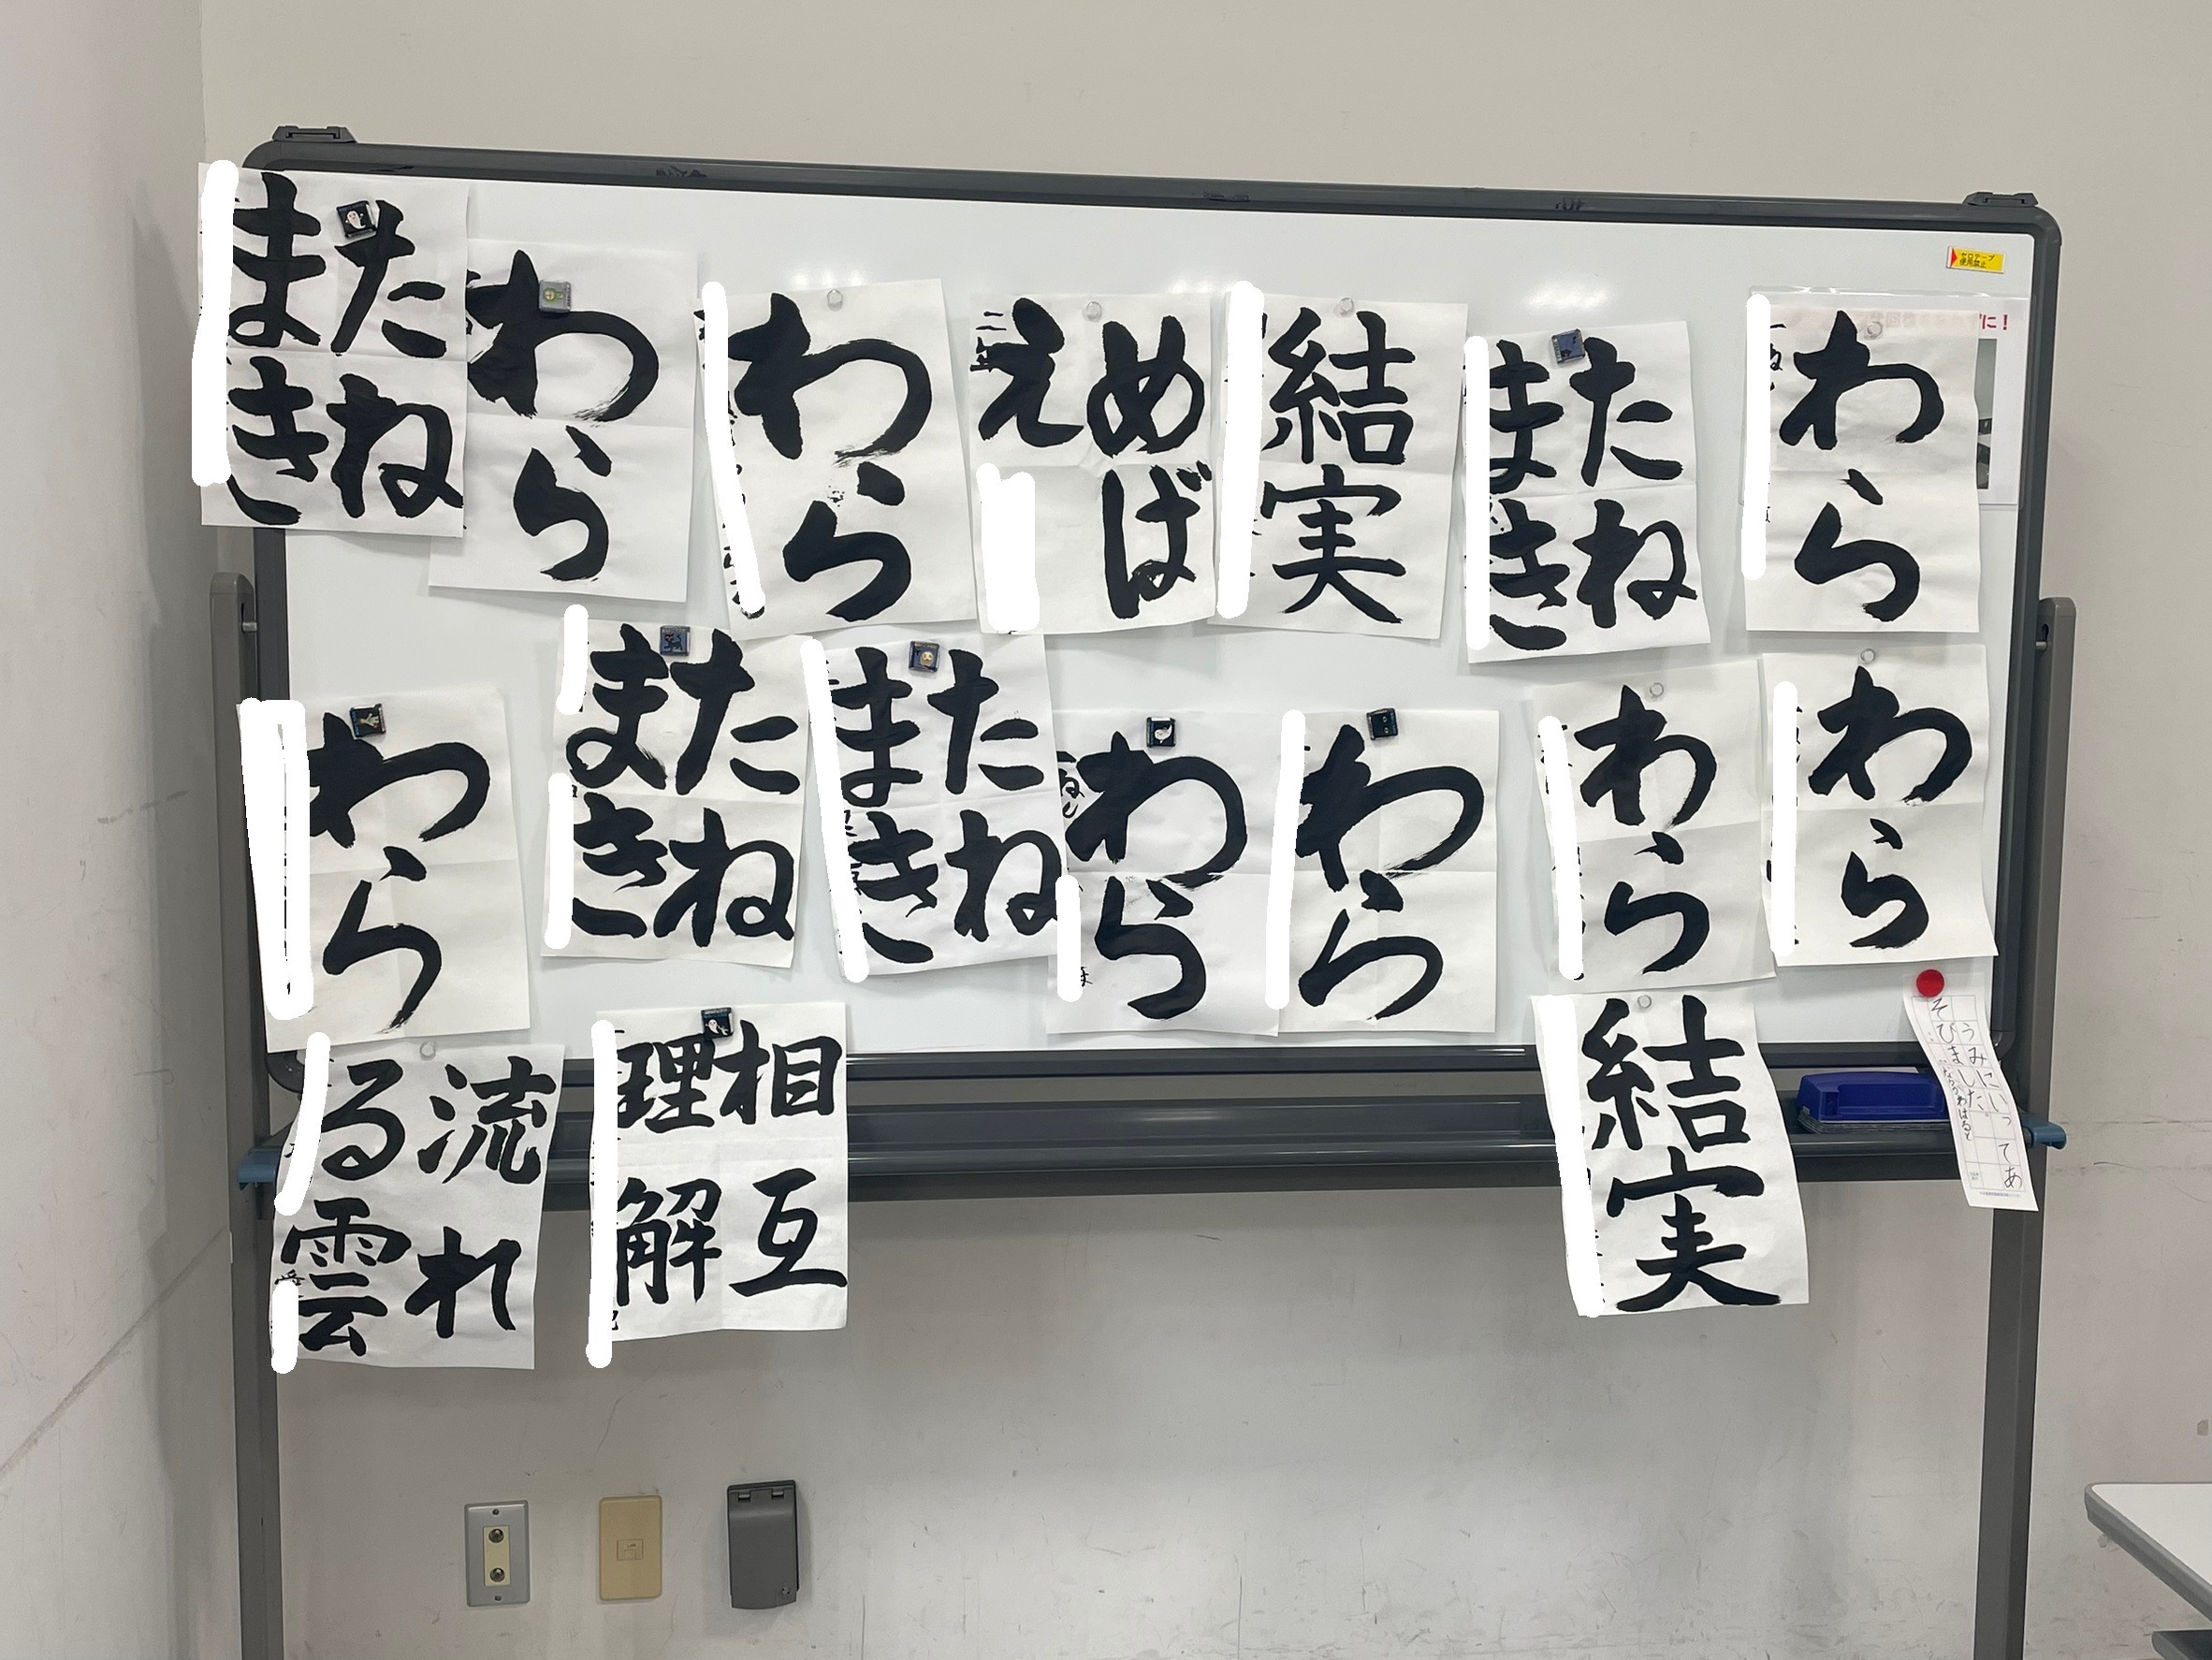 たね
まき
わら
わら
めば
え
結実
たね
まき
わら
セロテープ
使用禁止
に!
わら
たね
まき
たね
まき
わら
わら
わら
わら
流れ
る雲
相互
理解
結実
うみにいってあ
そびました